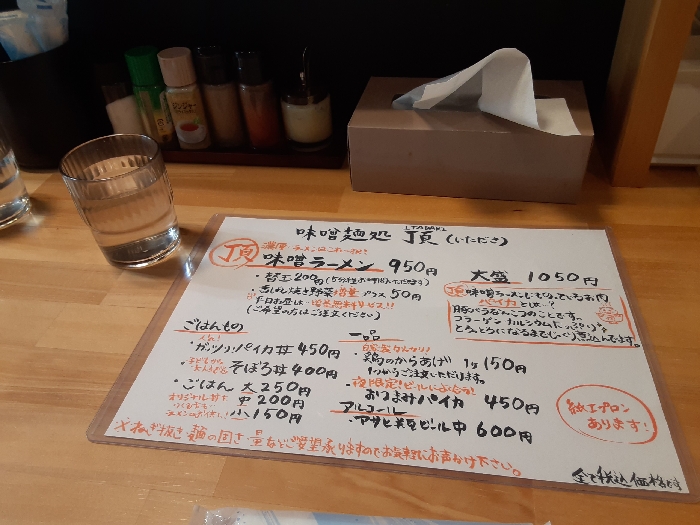 味噌麺処 頂(いただき)
ITADAKI
頂
濃厚
味噌ラーメン 950円
大盛 1050円
・替玉200円
・煮玉 焼き野菜増量 プラス50円
(ご希望の方はご注文ください)
頂 味噌ラーメンにものってるお肉
パイカとは…?
豚バラなんこつのことです。
コラーゲン カルシウムたっぷり
とろっとろになるまでじっくり煮込んでます。
ごはんもの
人気!
・ガッツリ!パイカ丼 450円
・そぼろ丼 400円
・ごはん 大 250円
中 200円
小 150円
一品
・鶏のからあげ 1ヶ150円
1ヶからご注文いただけます。
・夜限定!ビールによく合う!
おつまみパイカ 450円
アルコール
・アサヒ 生ビール中 600円
紙エプロン
あります!
※ねぎ抜き 麺の固さ・量など ご要望承りますのでお気軽にお声がけ下さい。
全て税込価格です